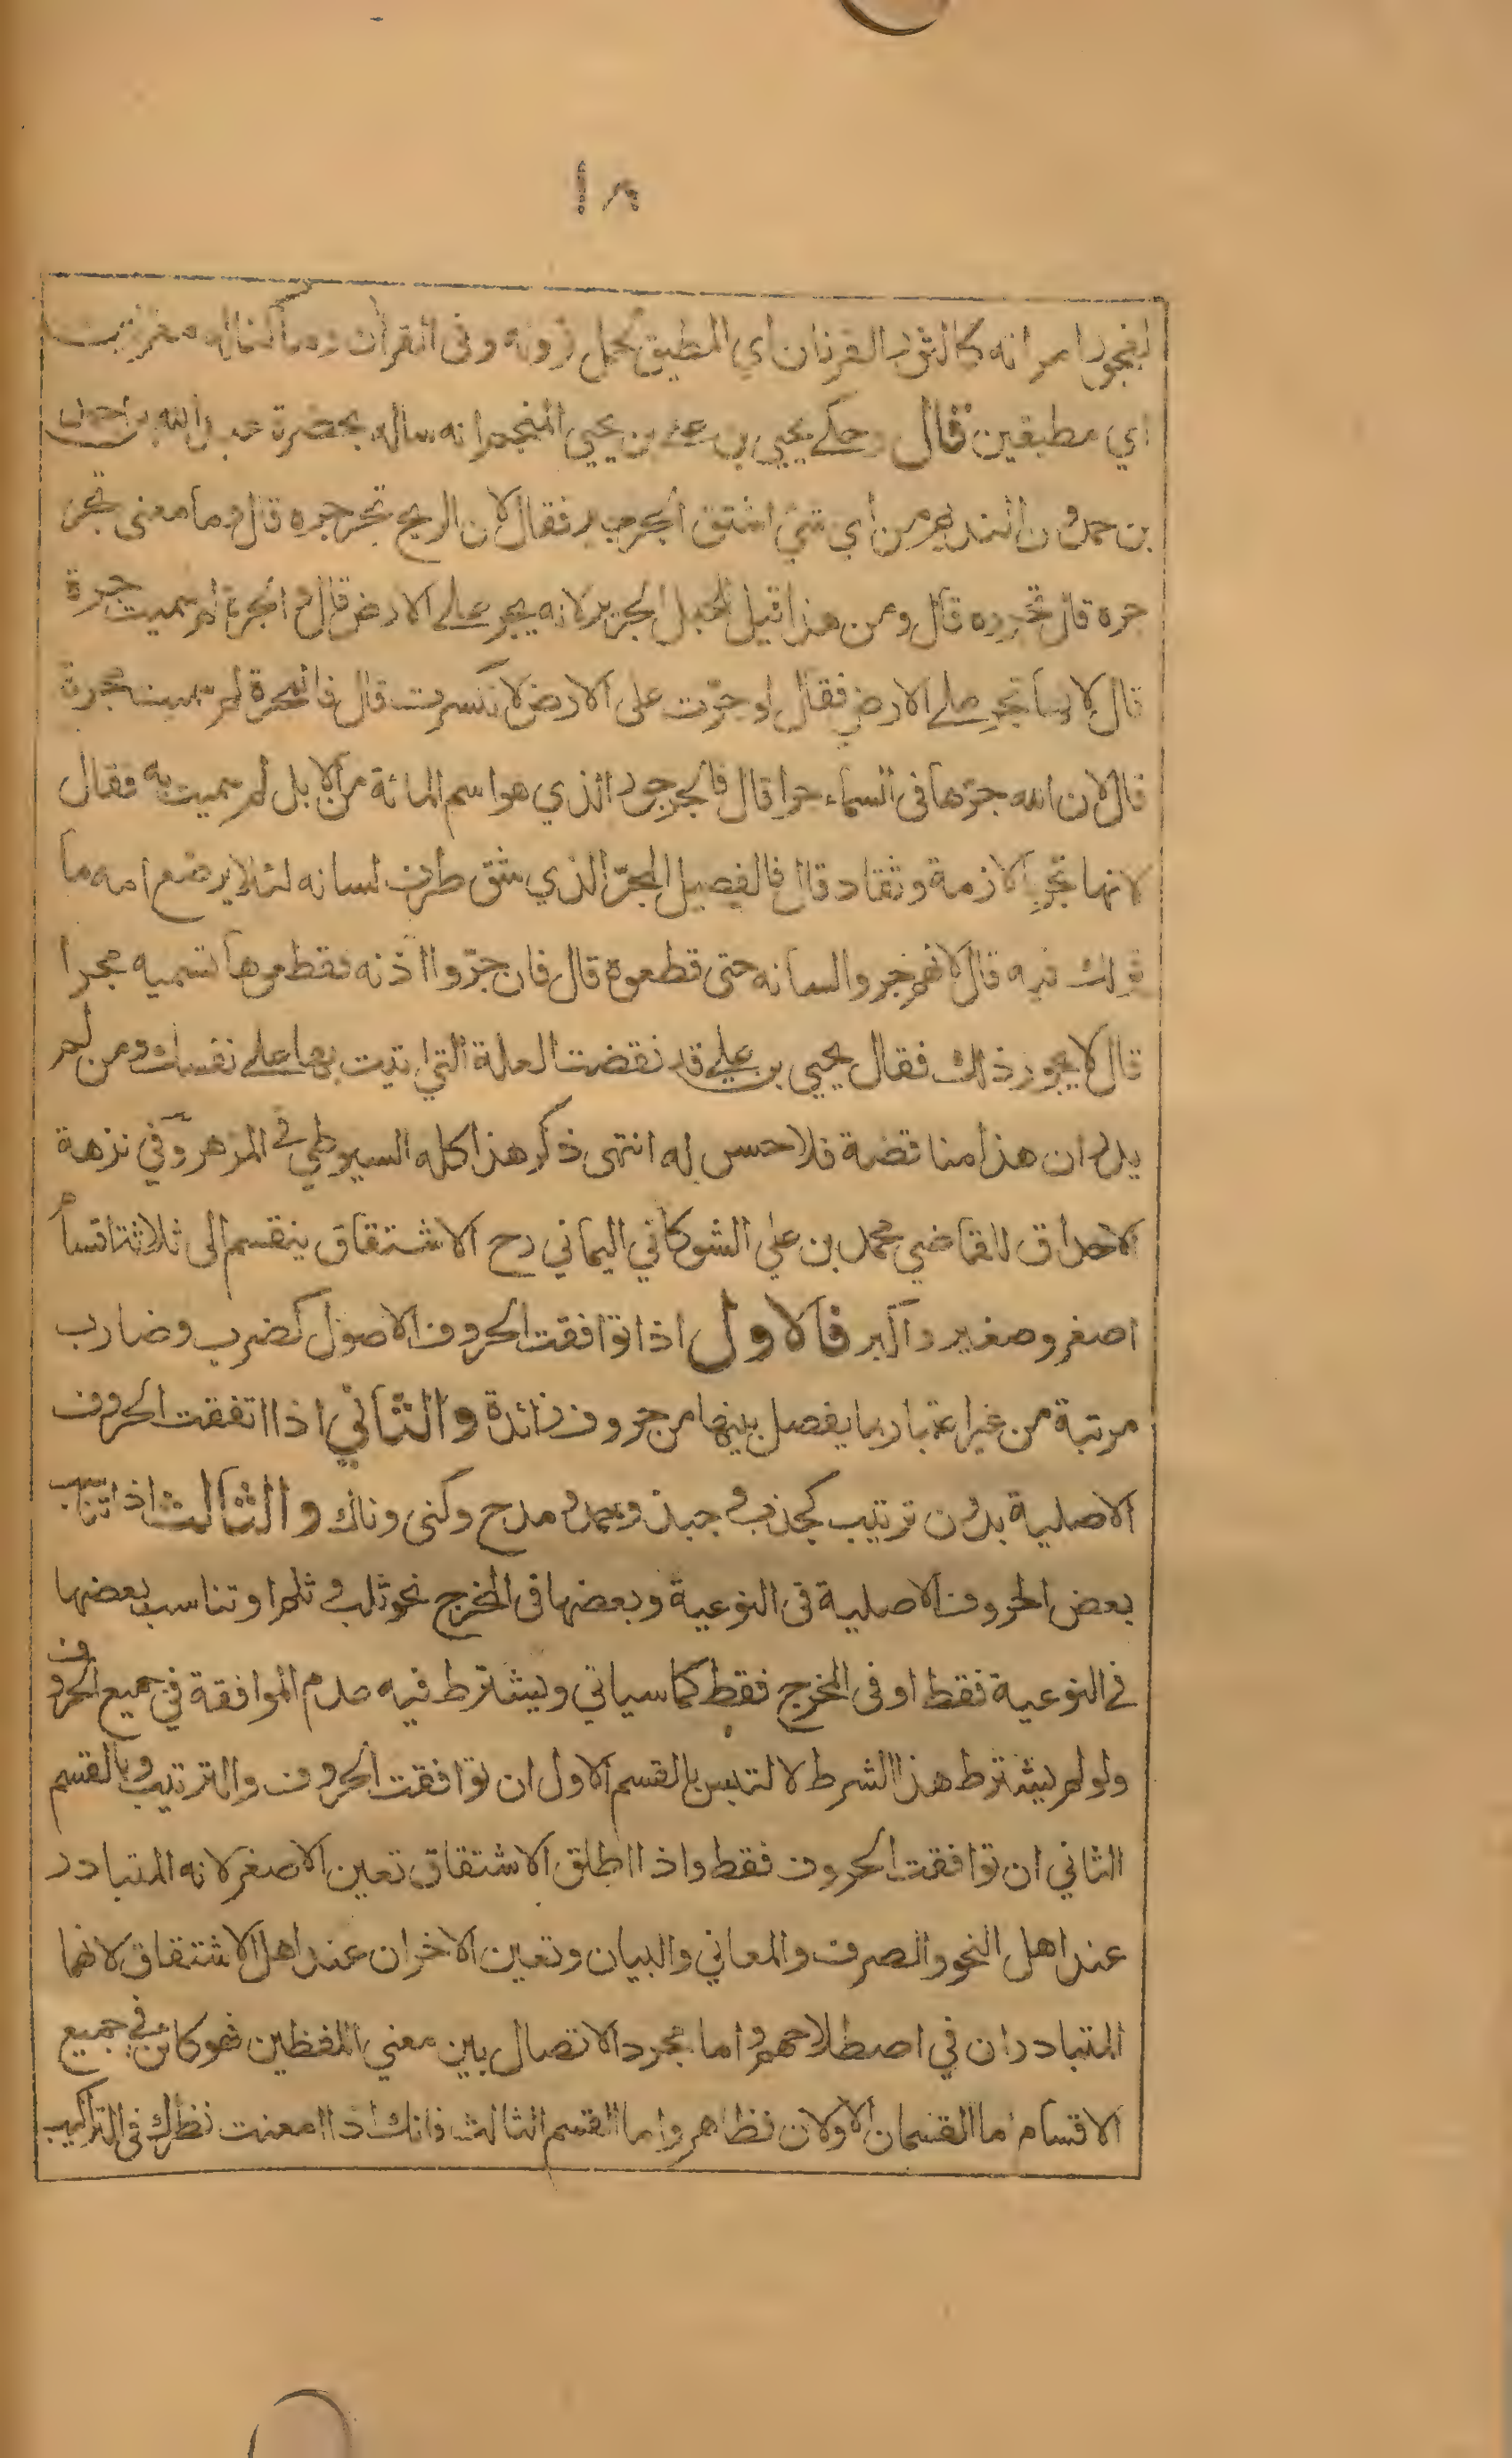 ١٨
لفجور امرأته كالثور القرنان اي المطيق لحمل قرونه وفى القرآن وما كنا له مقرنين
اي مطيقين قال وحكے يحيى بن علے بن يحيى المنجم انه ساله بحضرة عبد الله بن احمد
بن حمدون النديم من اي شئ اشتق الجرجير فقال لان الريح تجرجره قال وما معنى تجر
جره قال تجرره قال ومن هذا قيل للحبل الجرير لانه يجر علے الارض قال والجرة لم سميت جرة
قال لانها تجر علے الارض فقال لو جرّت على الارض لانكسرت قال فالمجرة لم سميت مجرة
قال لان الله جرّها فى السماء جرا قال فالجرجور الذي هو اسم المائة من الابل لم سميت به فقال
لانها تجر بالازمة وتقاد قال فالفصيل المجرّ الذي شق طرف لسانه لئلا يرضع امه ما
قولك فيه قال لانهم جروا لسانه حتى قطعوه قال فان جرّوا اذنه فقطعوها تسميه مجرا
قال لا يجوز ذلك فقال يحيى بن علي قد نقضت العلة التي اتيت بها على نفسك ومن لم
يدر ان هذا مناقضة فلا حس له انتهى ذكر هذا كله السيوطي في المزهر وفي نزهة
الاحداق للقاضي محمد بن علي الشوكاني اليماني رح الاشتقاق ينقسم الى ثلاثة اقسام
اصغر وصغير واكبر فالاول اذا توافقت الحروف الاصول كضرب وضارب
مرتبة من غير اعتبار بما يفصل بينها من حروف زائدة والثاني اذا اتفقت الحروف
الاصلية بدون ترتيب كجذب وجبذ وحمد ومدح وكنى وناك والثالث اذا تناسب
بعض الحروف الاصلية فى النوعية وبعضها فى المخرج نحو ثلب وثلم او تناسب بعضها
في النوعية فقط او فى المخرج فقط كما سياتي ويشترط فيه عدم الموافقة في جميع الحروف
ولو لم يشترط هذا الشرط لالتبس بالقسم الاول ان توافقت الحروف والترتيب وبالقسم
الثاني ان توافقت الحروف فقط واذا اطلق الاشتقاق تعين الاصغر لانه المتبادر
عند اهل النحو والصرف والمعاني والبيان وتعين الاخران عند اهل الاشتقاق لانهما
المتبادران في اصطلاحهم واما مجرد الاتصال بين معني اللفظين فهو كائن في جميع
الاقسام اما القسمان الاولان فظاهر واما القسم الثالث فانك اذا امعنت نظرك فى التراكيب